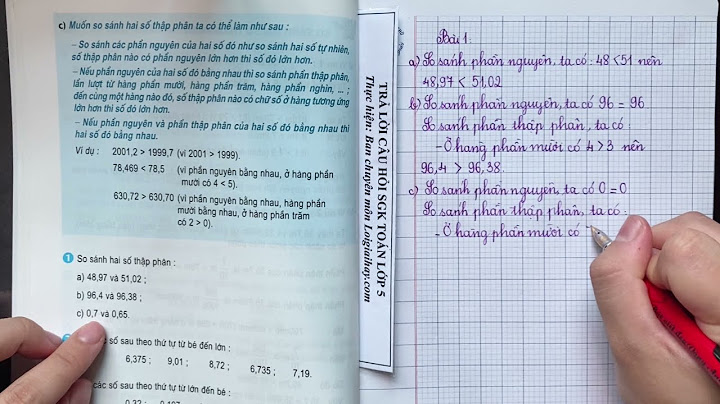 c) Muốn so sánh hai số thập phân ta có thể làm như sau :
– So sánh các phần nguyên của hai số đó như so sánh hai số tự nhiên,
số thập phân nào có phần nguyên lớn hơn thì số đó lớn hơn.
– Nếu phần nguyên của hai số đó bằng nhau thì so sánh phần thập phân,
lần lượt từ hàng phần mười, hàng phần trăm, hàng phần nghìn, ... ;
đến cùng một hàng nào đó, số thập phân nào có chữ số ở hàng tương ứng
lớn hơn thì số đó lớn hơn.
– Nếu phần nguyên và phần thập phân của hai số đó bằng nhau thì
hai số đó bằng nhau.
Ví dụ : 2001,2 > 1999,7 (vì 2001 > 1999).
78,469 < 78,5 (vì phần nguyên bằng nhau, ở hàng phần
mười có 4 < 5).
630,72 > 630,70 (vì phần nguyên bằng nhau, hàng phần
mười bằng nhau, ở hàng phần trăm
có 2 > 0).
1 So sánh hai số thập phân :
a) 48,97 và 51,02 ;
b) 96,4 và 96,38 ;
c) 0,7 và 0,65.
số sau theo thứ tự từ bé đến lớn :
6,375 ; 9,01 ; 8,72 ; 6,735 ; 7,19.
các số sau theo thứ tự từ lớn đến bé :
TRẢ LỜI CÂU HỎI SGK TOÁN LỚP 5
Thực hiện: Ban chuyên môn Loigiaihay.com
Bài 1.
a) So sánh phần nguyên, ta có: 48 < 51 nên
48,97 < 51,02
b) So sánh phần nguyên, ta có 96 = 96
So sánh phần thập phân, ta có:
- Ở hàng phần mười có 4 > 3 nên
96,4 > 96,38.
c) So sánh phần nguyên, ta có 0 = 0
So sánh phần thập phân, ta có:
- Ở hàng phần mười có